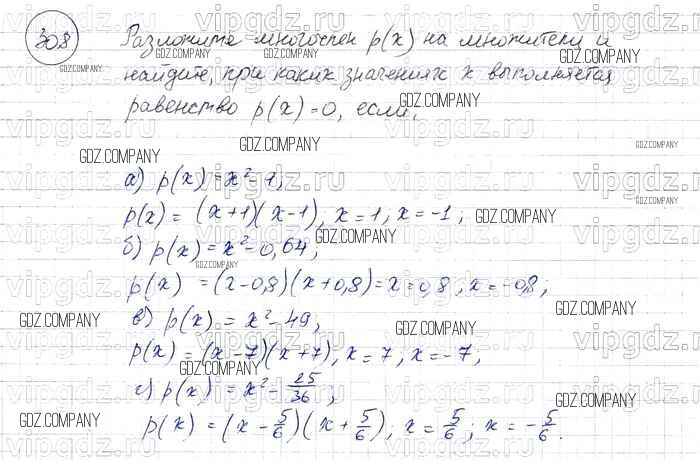 308
Разложите многочлен p(x) на множители и
найдите, при каких значениях x выполняется
равенство p(x)=0, если:
а) p(x) = x² - 1;
p(x) = (x+1)(x-1), x = 1, x = -1;
б) p(x) = x² - 0,64;
p(x) = (x-0,8)(x+0,8) = x = 0,8, x = -0,8;
в) p(x) = x² - 49,
p(x) = (x-7)(x+7), x = 7, x = -7;
г) p(x) = x² - 25/36;
p(x) = (x - 5/6)(x + 5/6); x = 5/6; x = -5/6.
GDZ.COMPANY
vipgdz.ru